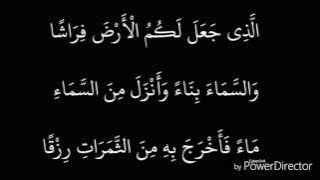 الَّذِى جَعَلَ لَكُمُ الْأَرْضَ فِرَاشًا
وَالسَّمَاءَ بِنَاءً وَأَنْزَلَ مِنَ السَّمَاءِ
مَاءً فَأَخْرَجَ بِهِ مِنَ الثَّمَرَاتِ رِزْقًا
by PowerDirector